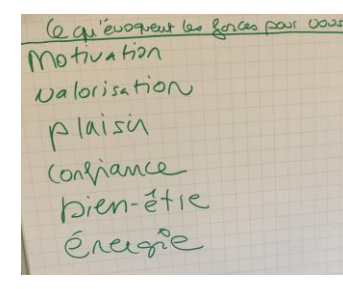 Ce qu'évoquent les forces pour vous
Motivation
valorisation
plaisir
confiance
bien-être
énergie